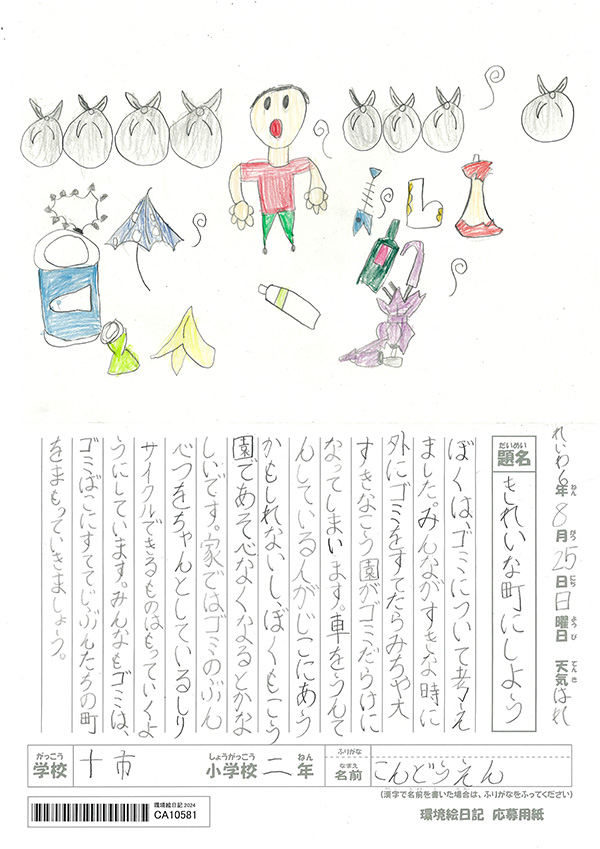 れいわ6年 8月25日 日曜日 天気 はれ
ねん がつ にち ようび てんき
だいめい
題名 きれいな町にしよう
ぼくは、ゴミについて考え
ました。みんながすきな時に
外にゴミをすてたらみちや大
すきなこう園がゴミだらけに
なってしまいます。車をうんて
んしている人がじこにあう
かもしれないし、ぼくもこう
園であそべなくなるとかな
しいです。家ではゴミのぶん
べつをちゃんとしているしり
サイクルできるものはもっていくよ
うにしています。みんなもゴミは、
ゴミばこにすててじぶんたちの町
をまもっていきましょう。
がっこう しょうがっこう ねん ふりがな
学校 十市 小学校 二年 なまえ 名前 こんどうえん
(漢字で名前を書いた場合は、ふりがなをふってください)
環境絵日記 2024
CA10581
環境絵日記 応募用紙